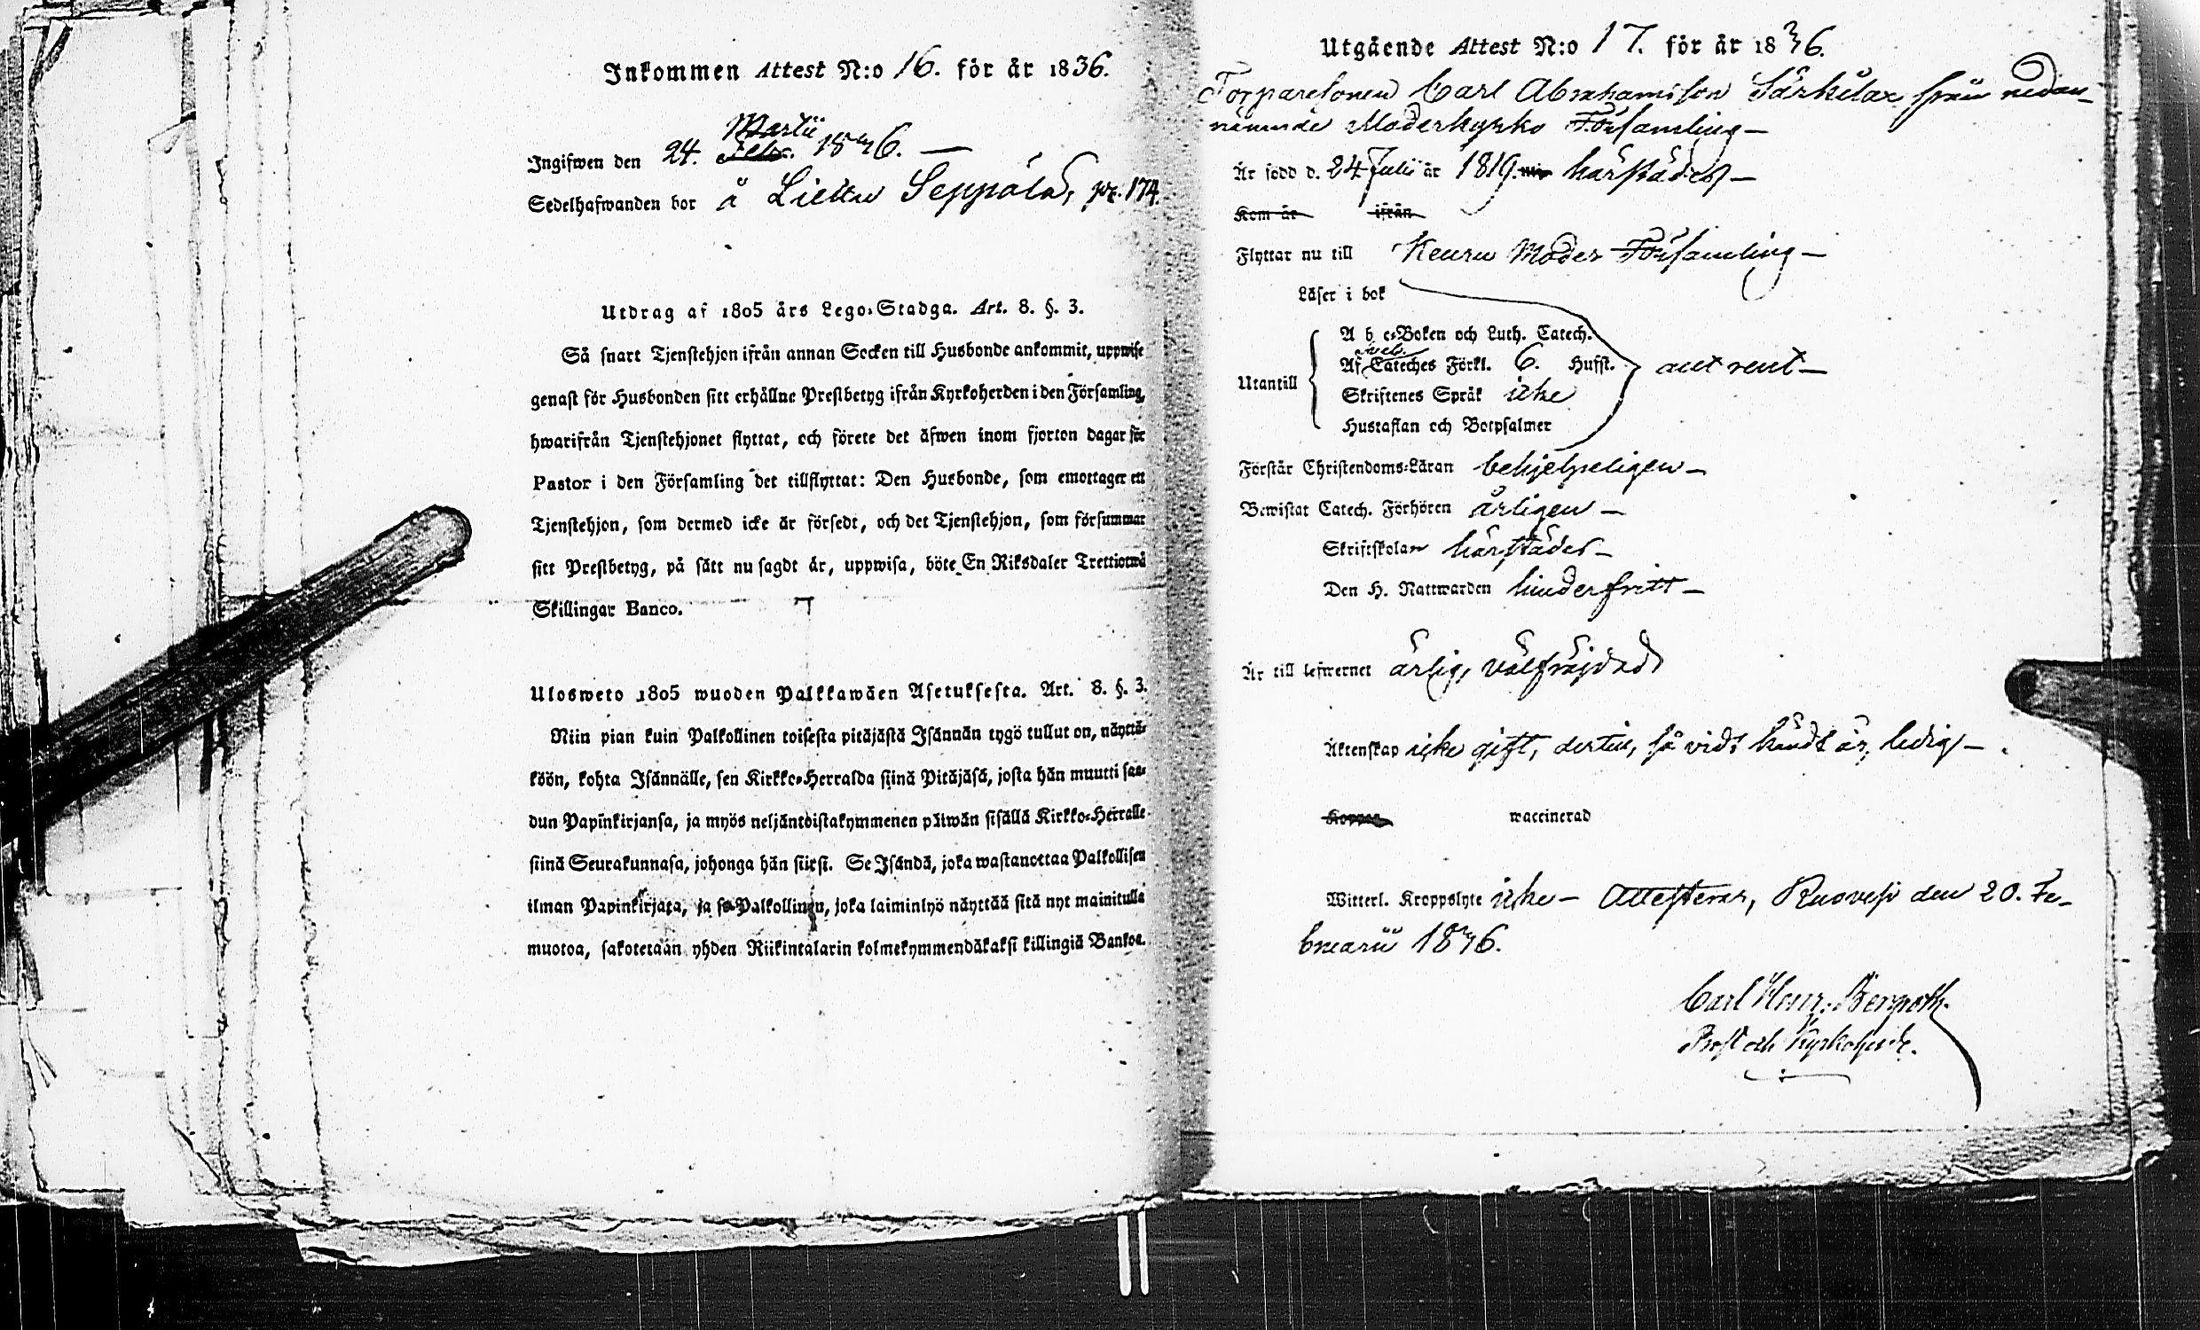 Inkommen Attest N:o 16. för år 1836.
Martii
Ingifwen den 24. Febr. 1836. —
Sedelhafwanden bor å Liekku Seppälä, p. 174.
Utdrag af 1805 års Lego-Stadga. Art. 8. §. 3.
Så snart Tjenstehjon ifrån annan Socken till Husbonde ankommit, uppwise
genast för Husbonden sitt erhållne Prestbetyg ifrån Kyrkoherden i den Församling,
hwarifrån Tjenstehjonet flyttat, och förete det äfwen inom fjorton dagar för
Pastor i den Församling det tillflyttat: Den Husbonde, som emottager ett
Tjenstehjon, som dermed icke är försedt, och det Tjenstehjon, som försummar
sitt Prestbetyg, på sätt nu sagdt är, uppwisa, böte En Riksdaler Trettiotwå
Skillingar Banco.
Ulosweto 1805 wuoden Palkkawäen Asetuksesta. Art. 8. §. 3.
Niin pian kuin Palkollinen toisesta pitäjästä Isännän tygö tullut on, näyttä-
köön, kohta Isännälle, sen Kirkko-Herralda siinä Pitäjäsä, josta hän muutti saa-
dun Papinkirjansa, ja myös neljäntoistakymmenen päiwän sisällä Kirkko-Herralle
siinä Seurakunnasa, johonga hän siirsi. Se Isändä, joka wastanottaa Palkollisen
ilman Papinkirjata, ja se Palkollinen, joka laiminlyö näyttää sitä nyt mainitulla
muotoa, sakotetaan yhden Riikintalarin kolmekymmendäkaksi killingiä Bankoa.
Utgående Attest N:o 17. för år 1836.
Torparesonen Carl Abrahamsson Särkilax från nedan-
nämnde Moderkyrko Församling —
Är född d. 24 Julii år 1819. härstädes —
Kom år ifrån
Flyttar nu till Keuru Moder Församling —
Läser i bok
A b c-Boken och Luth. Catech.
Sveb.
Utantill Af Cateches Förkl. 6. Hufst. ant rent —
Skriftenes Språk icke
Hustaflan och Botpsalmer
Förstår Christendoms-Läran behjelpeligen —
Bewistat Catech. Förhören årligen —
Skriftskolan härstädes —
Den H. Nattwarden hinderfritt —
Är till lefwernet ärlig, välfräjdad
Äktenskap icke gift, dertill, så vidt kändt är, ledig —
Koppor waccinerad
Witterl. Kroppslyte icke — Attesteras, Ruovesi den 20. Fe-
bruarii 1836.
Carl Henr. Bergroth.
Prost och Kyrkoherde.